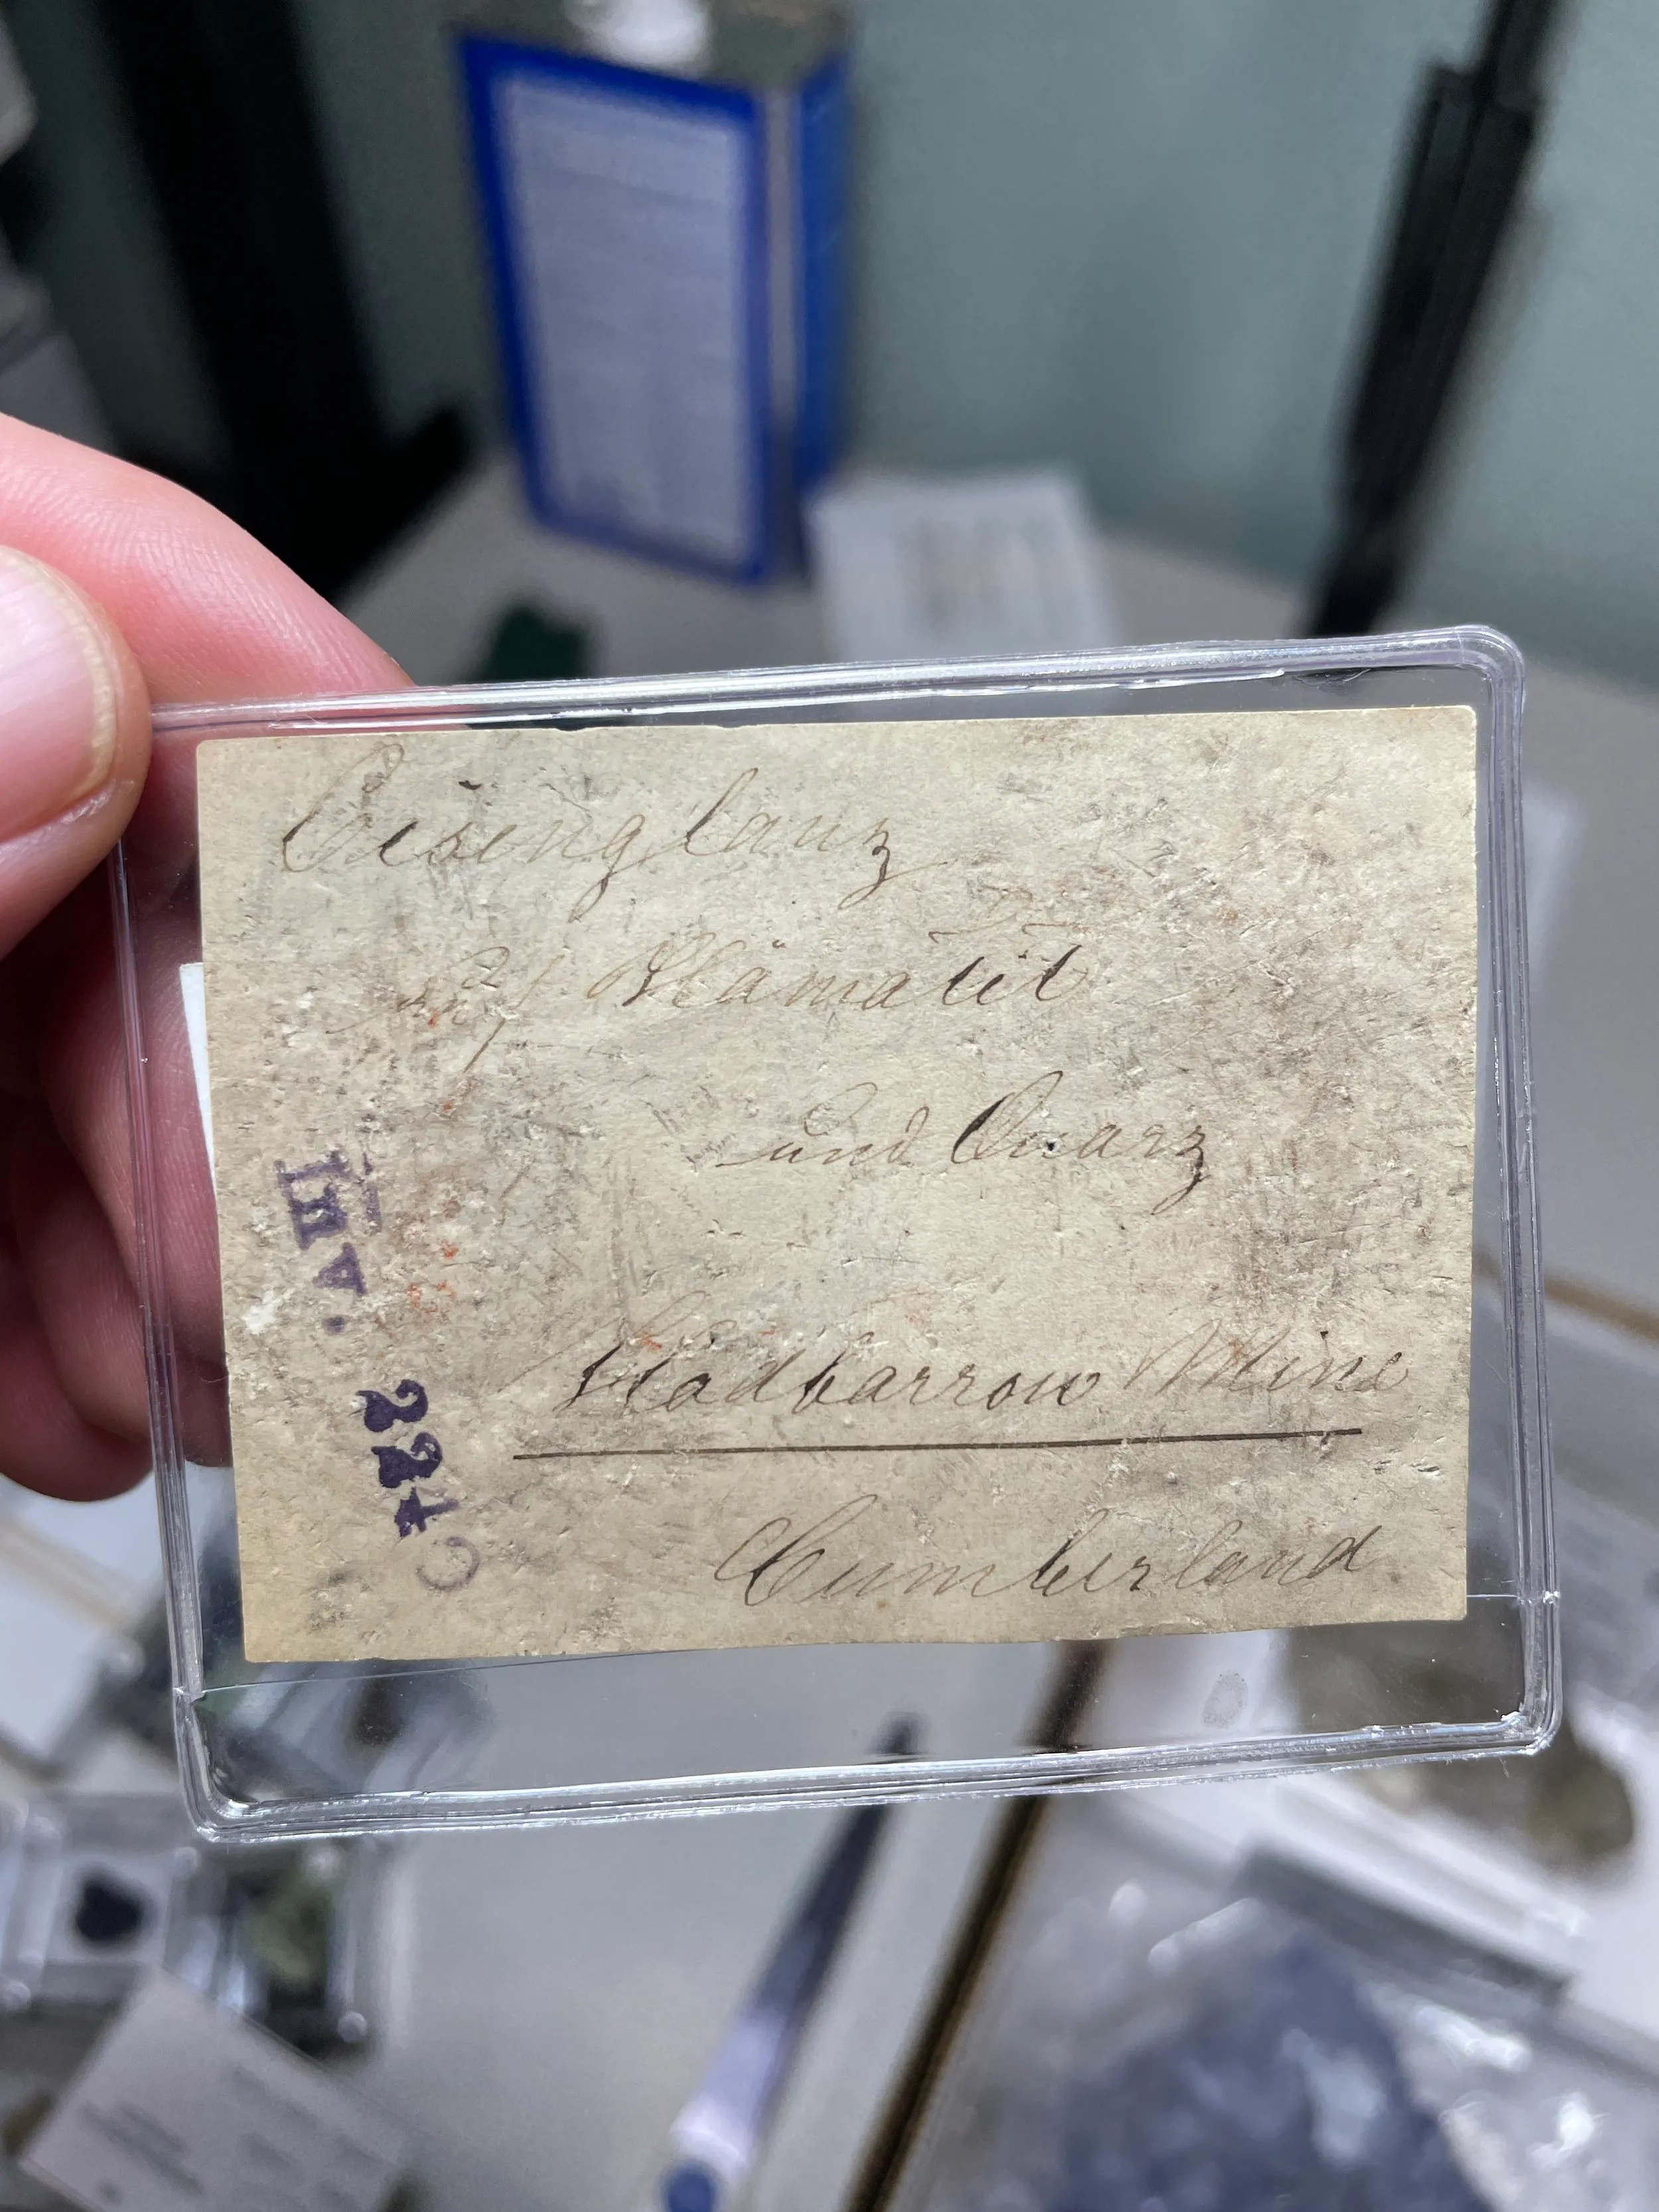 Eisenglanz
auf Hämatit
und Quarz
Hodbarrow Mine
Cumberland
III A.
224